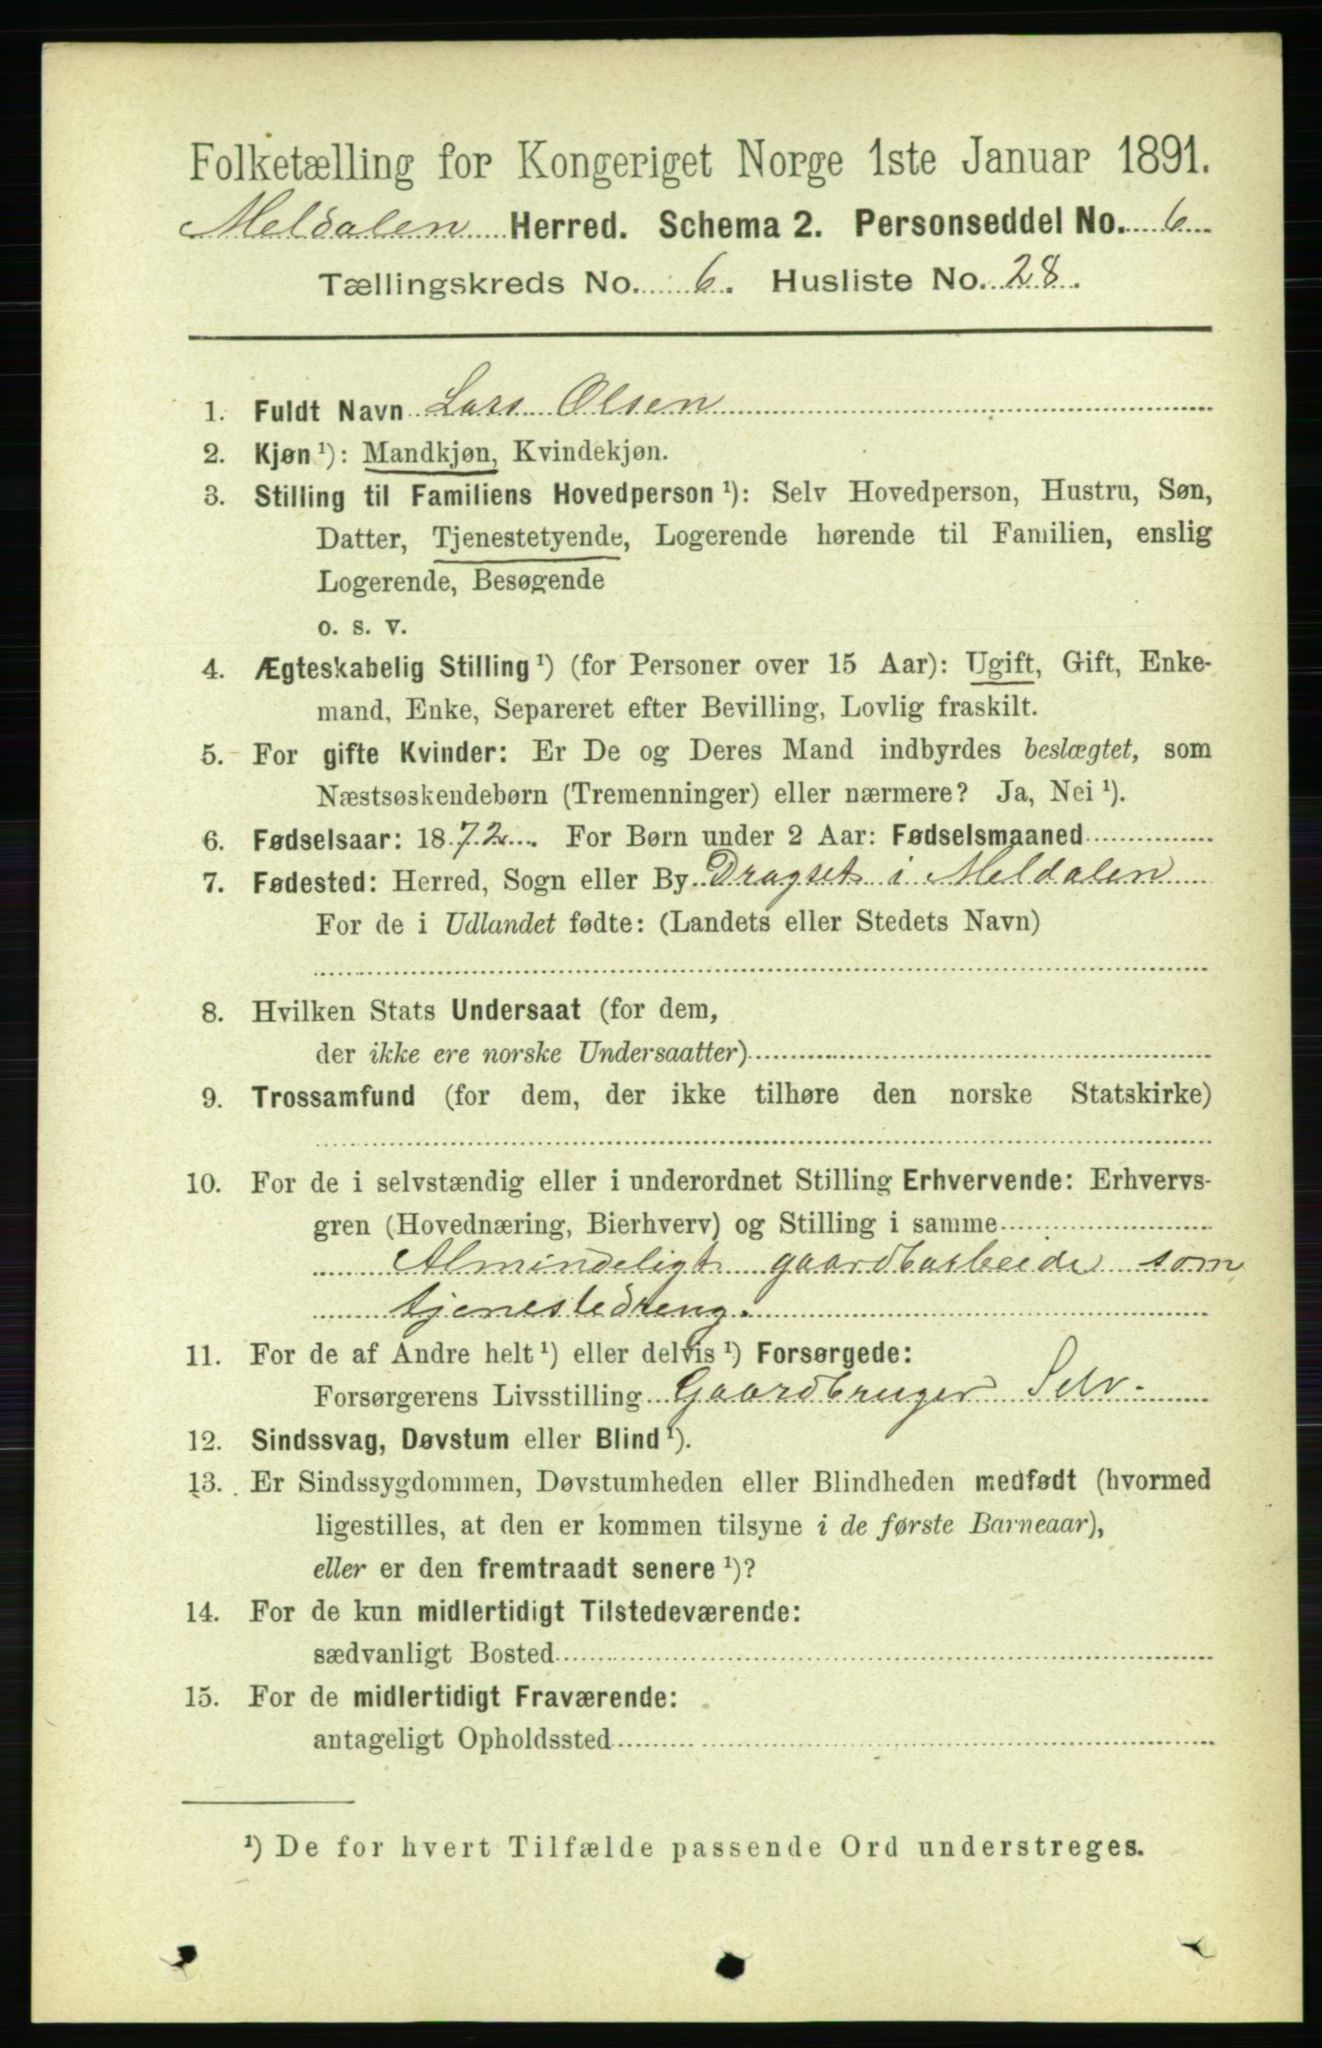 Folketælling for Kongeriget Norge 1ste Januar 1891.
Meldalen Herred. Schema 2. Personseddel No. 6
Tællingskreds No. 6. Husliste No. 28.
1. Fuldt Navn Lars Olsen
2. Kjøn ¹): Mandkjøn, Kvindekjøn.
3. Stilling til Familiens Hovedperson ¹): Selv Hovedperson, Hustru, Søn,
Datter, Tjenestetyende, Logerende hørende til Familien, enslig
Logerende, Besøgende
o. s. v.
4. Ægteskabelig Stilling ¹) (for Personer over 15 Aar): Ugift, Gift, Enke-
mand, Enke, Separeret efter Bevilling, Lovlig fraskilt.
5. For gifte Kvinder: Er De og Deres Mand indbyrdes beslægtet, som
Næstsøskendebørn (Tremenninger) eller nærmere? Ja, Nei ¹).
6. Fødselsaar: 1872. For Børn under 2 Aar: Fødselsmaaned
7. Fødested: Herred, Sogn eller By Dragset i Meldalen
For de i Udlandet fødte: (Landets eller Stedets Navn)
8. Hvilken Stats Undersaat (for dem,
der ikke ere norske Undersaatter)
9. Trossamfund (for dem, der ikke tilhøre den norske Statskirke)
10. For de i selvstændig eller i underordnet Stilling Erhvervende: Erhvervs-
gren (Hovednæring, Bierhverv) og Stilling i samme
Almindeligt gaardbarbeide som
tjenestedreng.
11. For de af Andre helt ¹) eller delvis ¹) Forsørgede:
Forsørgerens Livsstilling Gaardbruger Selv.
12. Sindssvag, Døvstum eller Blind ¹).
13. Er Sindssygdommen, Døvstumheden eller Blindheden medfødt (hvormed
ligestilles, at den er kommen tilsyne i de første Barneaar),
eller er den fremtraadt senere ¹)?
14. For de kun midlertidigt Tilstedeværende:
sædvanligt Bosted
15. For de midlertidigt Fraværende:
antageligt Opholdssted
¹) De for hvert Tilfælde passende Ord understreges.